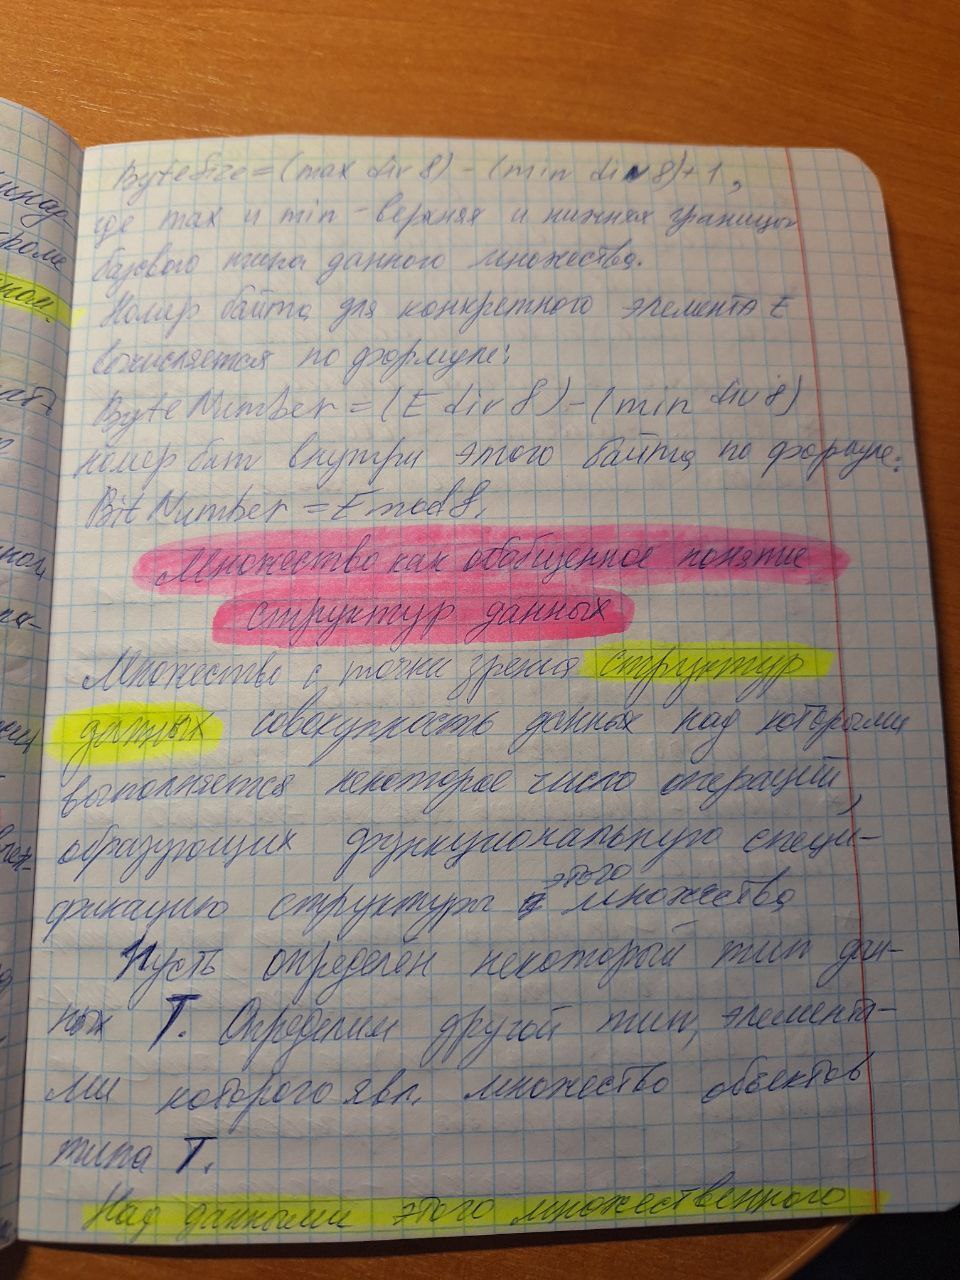 ByteSize = (max div 8) - (min div 8) + 1,
где max и min - верхняя и нижняя границы
базового типа данного множества.
Номер байта для конкретного элемента E
вычисляется по формуле:
ByteNumber = (E div 8) - (min div 8)
номер бит внутри этого байта по формуле:
BitNumber = E mod 8.
Множество как обобщенное понятие
структур данных
Множество с точки зрения структур
данных совокупность данных над которыми
выполняется некоторое число операций,
образующих функциональную специ-
фикацию структуры этого множества
Пусть определен некоторый тип дан-
ных T. Определим другой тип, элемента-
ми которого явл. множество объектов
типа T.
Над данными этого множественного